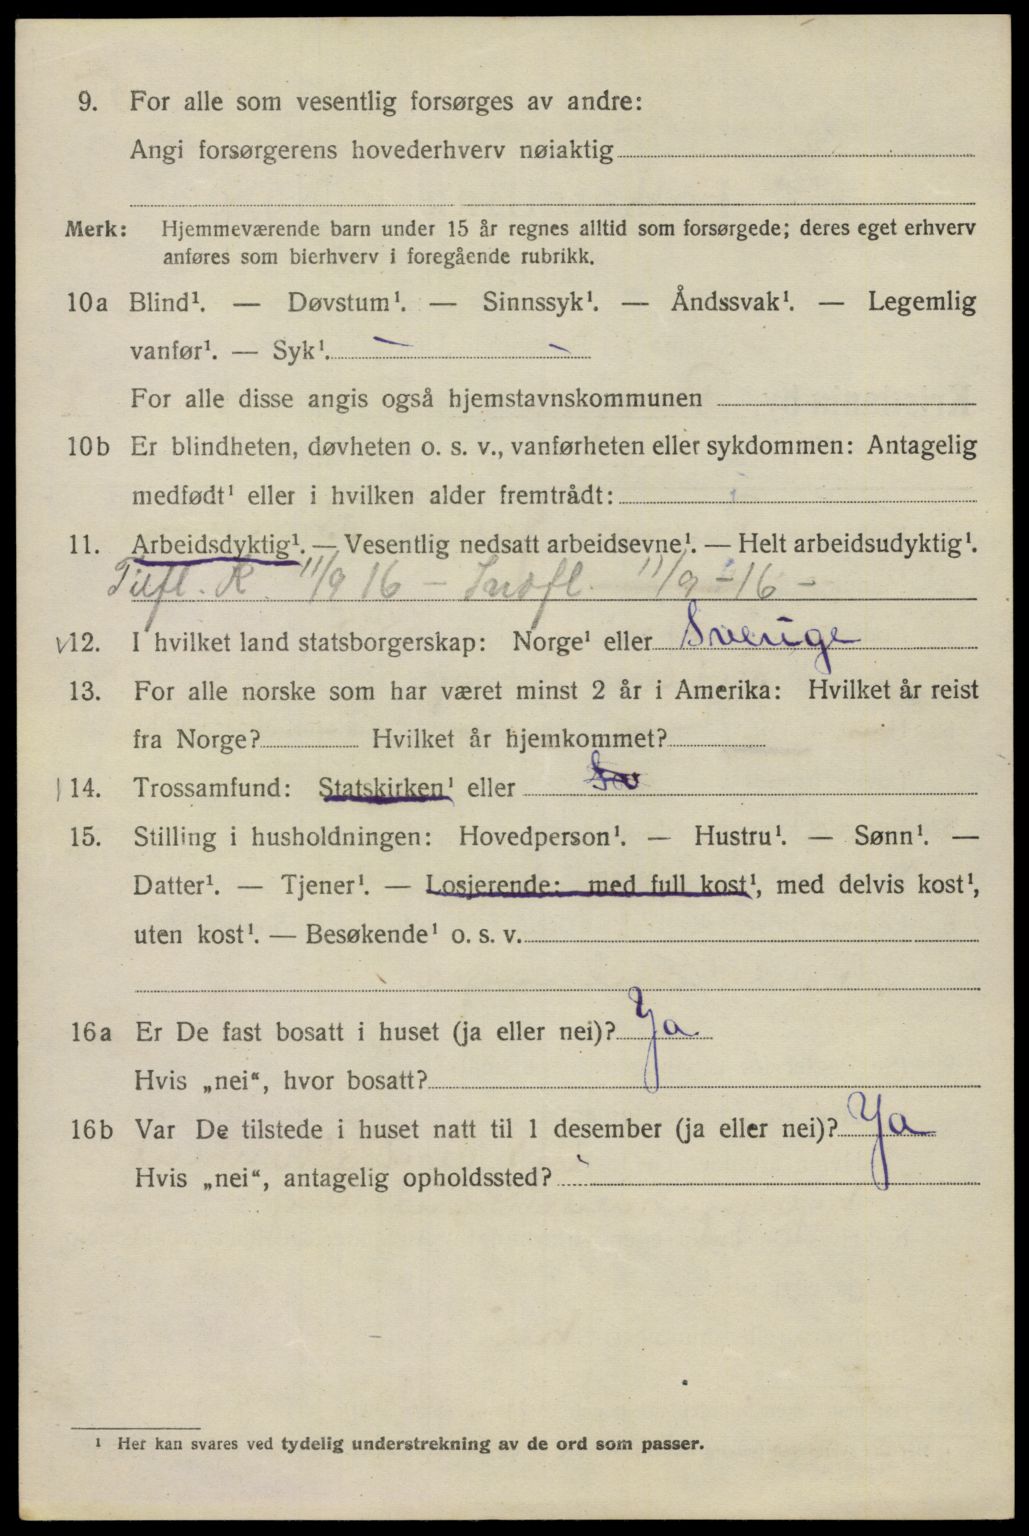 9. For alle som vesentlig forsørges av andre:
Angi forsørgerens hovederhverv nøiaktig
Merk: Hjemmeværende barn under 15 år regnes alltid som forsørgede; deres eget erhverv
anføres som bierhverv i foregående rubrikk.
10a Blind¹. — Døvstum¹. — Sinnssyk¹. — Åndssvak¹. — Legemlig
vanfør¹. — Syk¹.
For alle disse angis også hjemstavnskommunen
10b Er blindheten, døvheten o. s. v., vanførheten eller sykdommen: Antagelig
medfødt¹ eller i hvilken alder fremtrådt:
11. Arbeidsdyktig¹. — Vesentlig nedsatt arbeidsevne¹. — Helt arbeidsudyktig¹.
Tilfl. K. 11/9 16 – Indfl. 11/9 – 16 –
12. I hvilket land statsborgerskap: Norge¹ eller Sverige
13. For alle norske som har været minst 2 år i Amerika: Hvilket år reist
fra Norge? Hvilket år hjemkommet?
14. Trossamfund: Statskirken¹ eller
15. Stilling i husholdningen: Hovedperson¹. — Hustru¹. — Sønn¹. —
Datter¹. — Tjener¹. — Losjerende: med full kost¹, med delvis kost¹,
uten kost¹. — Besøkende¹ o. s. v.
16a Er De fast bosatt i huset (ja eller nei)? Ja
Hvis „nei“, hvor bosatt?
16b Var De tilstede i huset natt til 1 desember (ja eller nei)? Ja
Hvis „nei“, antagelig opholdssted?
¹ Her kan svares ved tydelig understrekning av de ord som passer.